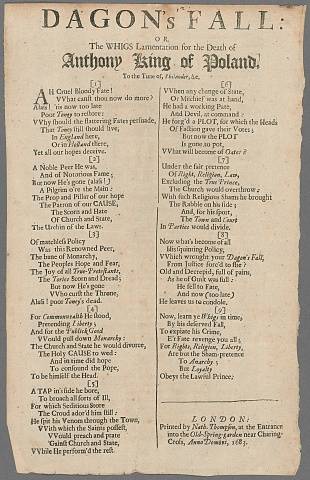 DAGON's FALL:
OR,
The WHIGS Lamentation for the Death of
Anthony King of Poland,
To the Tune of, Philander, &c.
[1]
AH Cruel Bloody Fate!
VVhat canst thou now do more?
Alas! 'tis now too late
Poor Toney to restore:
VVhy should the flattering Fates persuade,
That Toney still should live,
In England here,
Or in Holland there,
Yet all our hopes deceive.
[2]
A Noble Peer He was,
And of Notorious Fame;
But now He's gone (alas!)
A Pilgrim o're the Main:
The Prop and Pillar of our hope
The Patron of our CAUSE,
The Scorn and Hate
Of Church and State,
The Urchin of the Laws.
[3]
Of matchless Policy
Was this Renowned Peer,
The bane of Monarchy,
The Peoples Hope and Fear,
The Joy of all True-Protestants,
The Tories Scorn and Dread;
But now He's gone
VVho curst the Throne,
Alas! poor Toney's dead.
[4]
For Commonwealth He stood,
Pretending Liberty;
And for the Publick Good
VVould pull down Monarchy:
The Church and State he would divorce,
The Holy CAUSE to wed:
And in time did hope
To confound the Pope,
To be himself the Head.
[5]
A TAP in's side he bore,
To broach all sorts of Ill,
For which Seditious Store
The Croud ador'd him still:
He spit his Venom through the Town,
VVith which the Saints possest,
VVould preach and prate
'Gainst Church and State,
VVhile He perform'd the rest.
[6]
VVhen any change of State,
Or Mischief was at hand,
He had a working Pate,
And Devil, at command:
He forg'd a PLOT, for which the Heads
Of Faction gave their Votes;
But now the PLOT
Is gone to pot,
VVhat will become of
[7]
Under the fair pretence
Of Right, Religion, Law,
Excluding the True Prince,
The Church would overthrow:
With such Religious Sham he brought
The Rabble on his side;
And, for his sport,
The Town and Court
In Parties would divide.
[8]
Now what's become of all
His squinting Policy,
VVhich wrought your Dagon's Fall,
From Justice forc'd to flie?
Old and Decrepid, full of pains,
As he of Ouit was full:
He fell to Fate,
And now (too late)
He leaves us to condole.
[9]
Now, learn ye Whigs in time,
By his deserved Fall,
To expiate his Crime,
E're Fate revenge you all;
For Rights, Religion, Liberty,
Are but the Sham-pretence
To Anarchy;
But Loyalty
Obeys the Lawful Prince.
LONDON:
Printed by Nath. Thompson, at the Entrance
into the Old-Spring-garden near Charing-
Cross, Anno Domini, 1683.